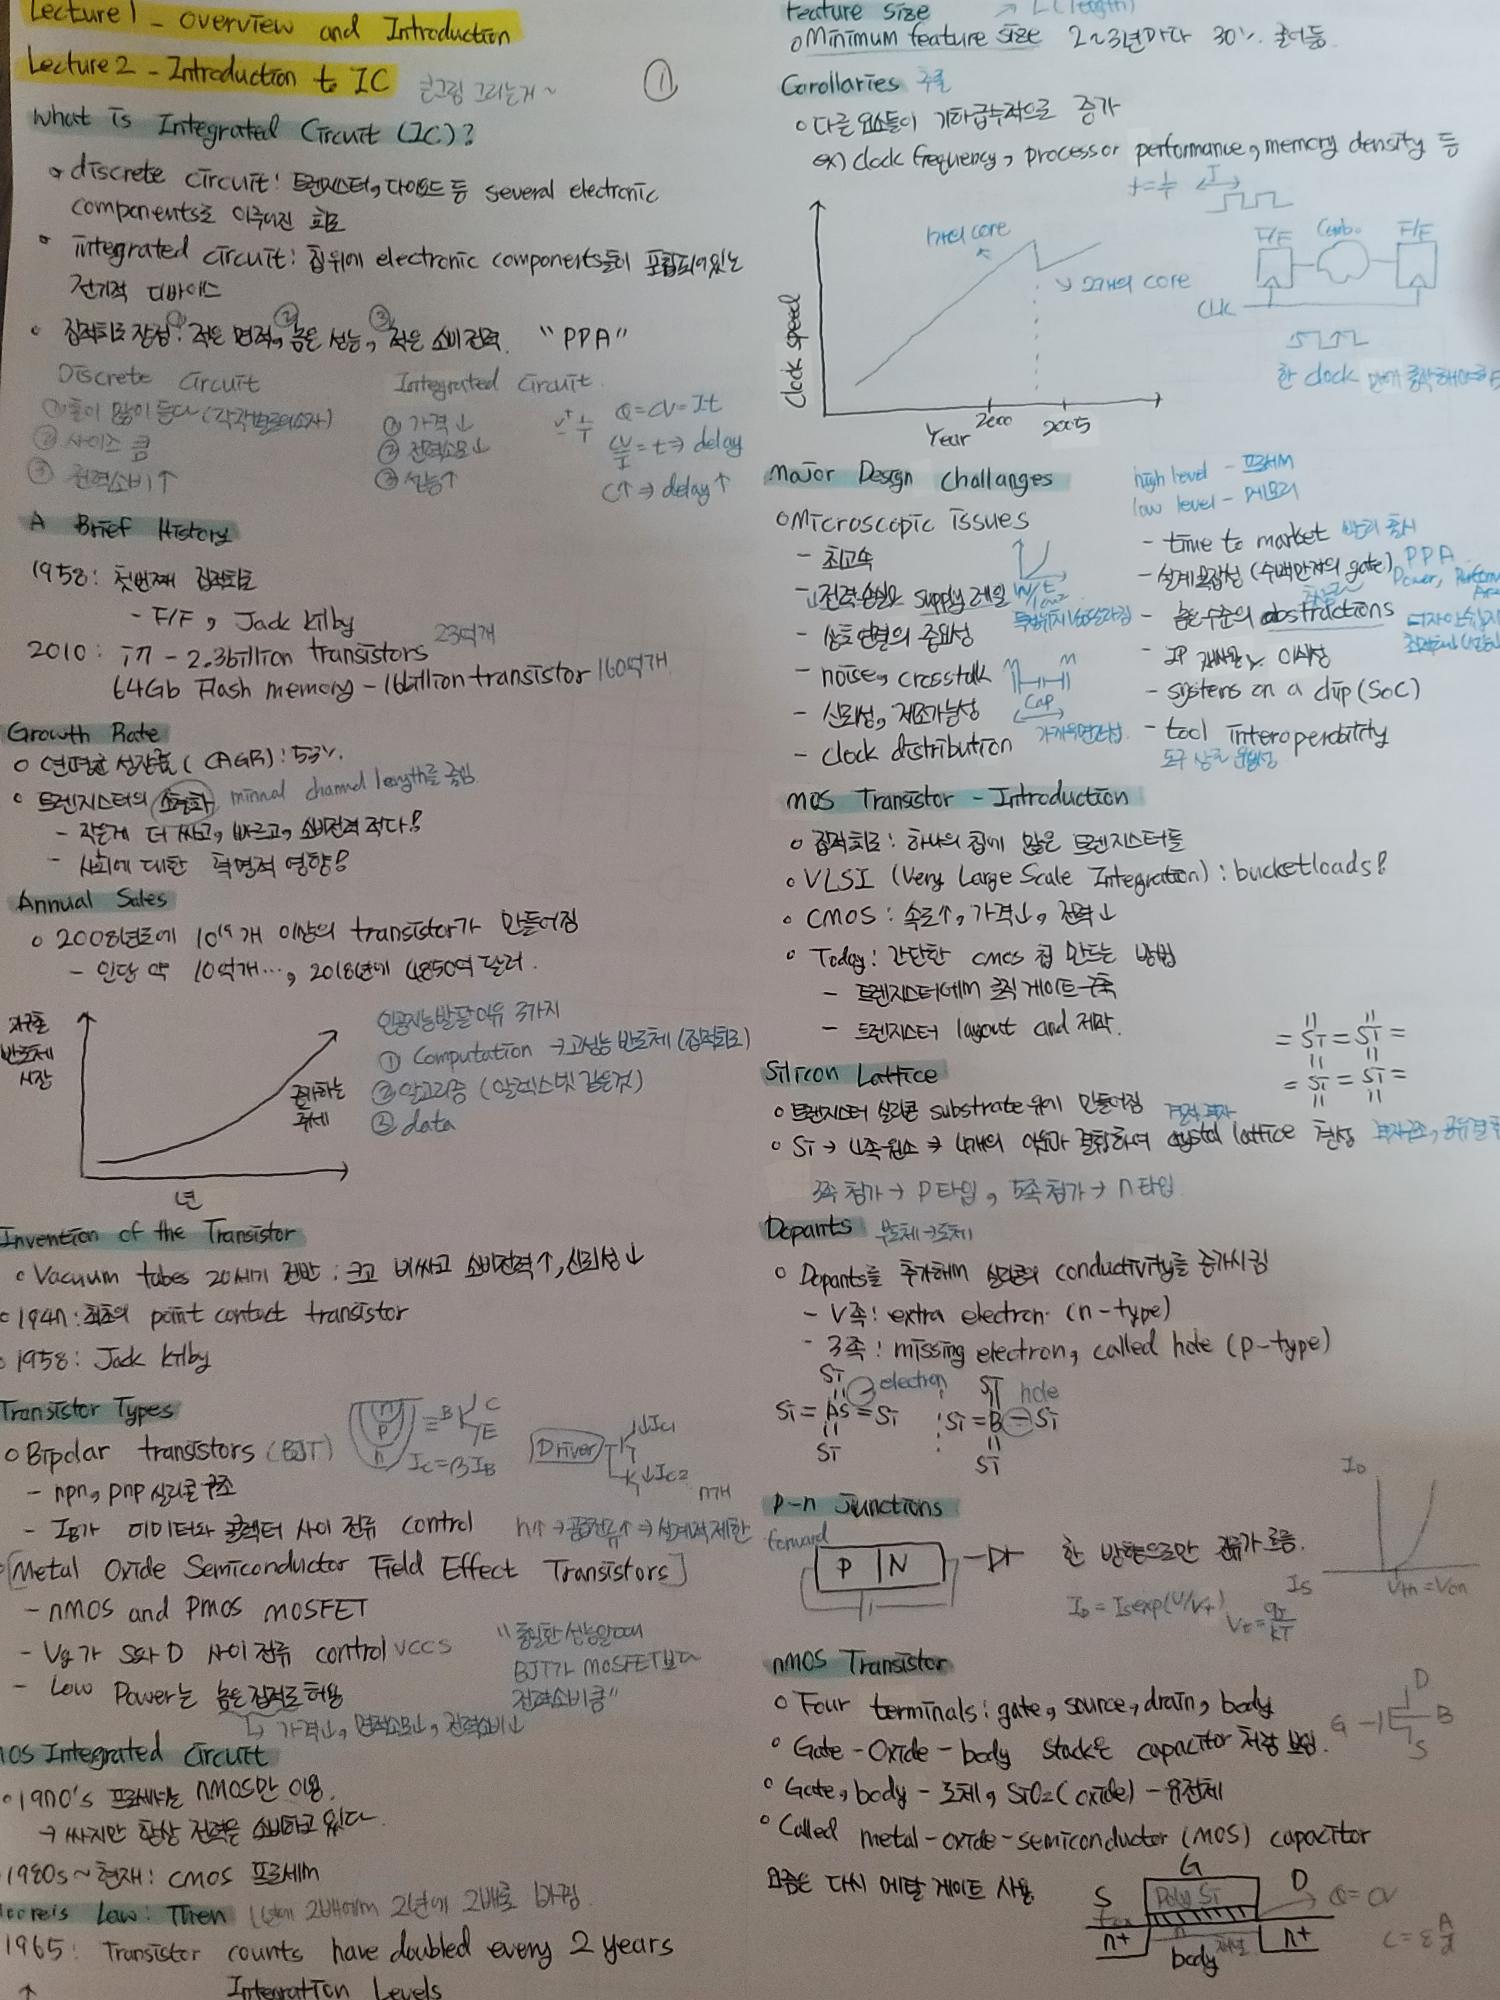 Lecture 1 - Overview and Introduction
Lecture 2 - Introduction to IC 큰그림 그리는거~
①
What is Integrated Circuit (IC)?
discrete circuit: 트렌지스터, 다이오드 등 several electronic
components로 이루어진 회로
integrated circuit: 칩위에 electronic components들이 포함되어있는
전기적 디바이스
집적회로 장점: ① 적은 면적, ② 높은 성능, ③ 적은 소비전력. "PPA"
Discrete Circuit
① 돈이 많이 든다 (각각 별로의 소자)
② 사이즈 큼
③ 전력소비↑
Integrated Circuit.
① 가격↓
② 전력소모↓
③ 성능↑
Q = CV = It
CV/I = t ⇒ delay
C↑ ⇒ delay↑
A Brief History
1958: 첫번째 집적회로
- F/F, Jack Kilby
2010: i7 - 2.3billion transistors 23억개
64Gb Flash memory - 16billion transistor 160억개
Growth Rate
연평균 성장률 (CAGR): 53%.
트렌지스터의 소형화 channel length를 줄임
- 작은게 더 싸고, 빠르고, 소비전력 적다!
- 사회에 대한 혁명적 영향!
Annual Sales
2008년도에 10¹⁹개 이상의 transistor가 만들어짐
- 인당 약 10억개..., 2018년에 4850억 달러.
지구촌
반도체
시장
증가하는
추세
년
인공지능발달이유 3가지
① Computation → 고성능 반도체 (집적회로)
② 알고리즘 (알렉스넷 같은것)
③ data
Invention of the Transistor
Vacuum tubes 20세기 전반: 크고 비싸고 소비전력↑, 신뢰성↓
1947: 최초의 point contact transistor
1958: Jack Kilby
Transistor Types
Bipolar transistors (BJT)
n
p
n
≡ B C
E
Ic = βIB
Driver
↓Ic1
↓Ic2
n개
- npn, pnp 실리콘 구조
- IB가 이미터와 콜렉터 사이 전류 control n↑ → 공급전류↑ → 설계적 제한
[Metal Oxide Semiconductor Field Effect Transistors]
- nMOS and PMOS MOSFET
- Vg가 S와 D 사이 전류 control VCCS
- Low Power는 높은 집적도 허용
↳ 가격↓, 면적소모↓, 전력소비↓
"동일한 성능일때
BJT가 MOSFET보다
전력소비큼"
MOS Integrated Circuit
1970's 프로세서는 nMOS만 이용.
→ 싸지만 항상 전력을 소비하고 있다.
1980s ~ 현재: CMOS 프로세서
Moore's Law: Then 1년에 2배에서 2년에 2배로 바뀜.
1965: Transistor counts have doubled every 2 years
↑ Integration Levels
Feature Size → L (length)
Minimum feature size 2~3년마다 30% 줄어듦.
Corollaries 추론
다른 요소들이 기하급수적으로 증가
ex) clock frequency, processor performance, memory density 등
f = 1/T
T
Clock speed
Year
2000
2005
1개의 core
2개의 core
F/F Combo F/F
CLK
한 clock 만에 동작해야함
Major Design Challanges
high level - 프로세서
low level - 메모리
Microscopic issues
- 최고속
- 전력손실과 supply 레일
- 상호연결의 중요성
- noise, crosstalk
- 신뢰성, 제조가능성
- clock distribution
M M
Cap
- time to market 빨리 출시
- 설계 복잡성 (수백만개의 gate) PPA
Power, Perform
Area
- 높은 수준의 abstractions
- IP 재사용
- systems on a chip (SoC)
- tool interoperability
도구 상호 운용성
MOS Transistor - Introduction
집적회로: 하나의 칩에 많은 트렌지스터들
VLSI (Very Large Scale Integration): bucketloads!
CMOS: 속도↑, 가격↓, 전력↓
Today: 간단한 CMOS 칩 만드는 방법
- 트렌지스터에서 로직 게이트 구축
- 트렌지스터 layout and 제작.
Silicon Lattice
= Si = Si =
= Si = Si =
트렌지스터 실리콘 substrate위에 만들어짐 결정 격자
Si → 4족원소 → 4개의 이웃과 결합하여 crystal lattice 형성 격자구조, 공유결합
3족 첨가 → P타입, 5족 첨가 → n타입
Dopants 부도체→도체
Dopants를 추가해서 실리콘의 conductivity를 증가시킴
- V족: extra electron (n-type)
- 3족: missing electron, called hole (p-type)
Si
Si = As = Si
Si
electron
Si
Si = B - Si
Si
hole
P-n Junctions
forward
P | N
한 방향으로만 전류가 흐름.
ID = Is exp(V/Vt) Vt = q/kT
ID
Is
Vth = Von
nMOS Transistor
Four terminals: gate, source, drain, body
Gate-Oxide-body stack은 capacitor 처럼 보임.
Gate, body - 도체, SiO2 (oxide) - 유전체
Called metal-oxide-semiconductor (MOS) capacitor
요즘은 다시 메탈 게이트 사용
D
G B
S
G
S Poly Si D
tox
n+ n 채널 n+
body
Q = CV
C = ε A/d